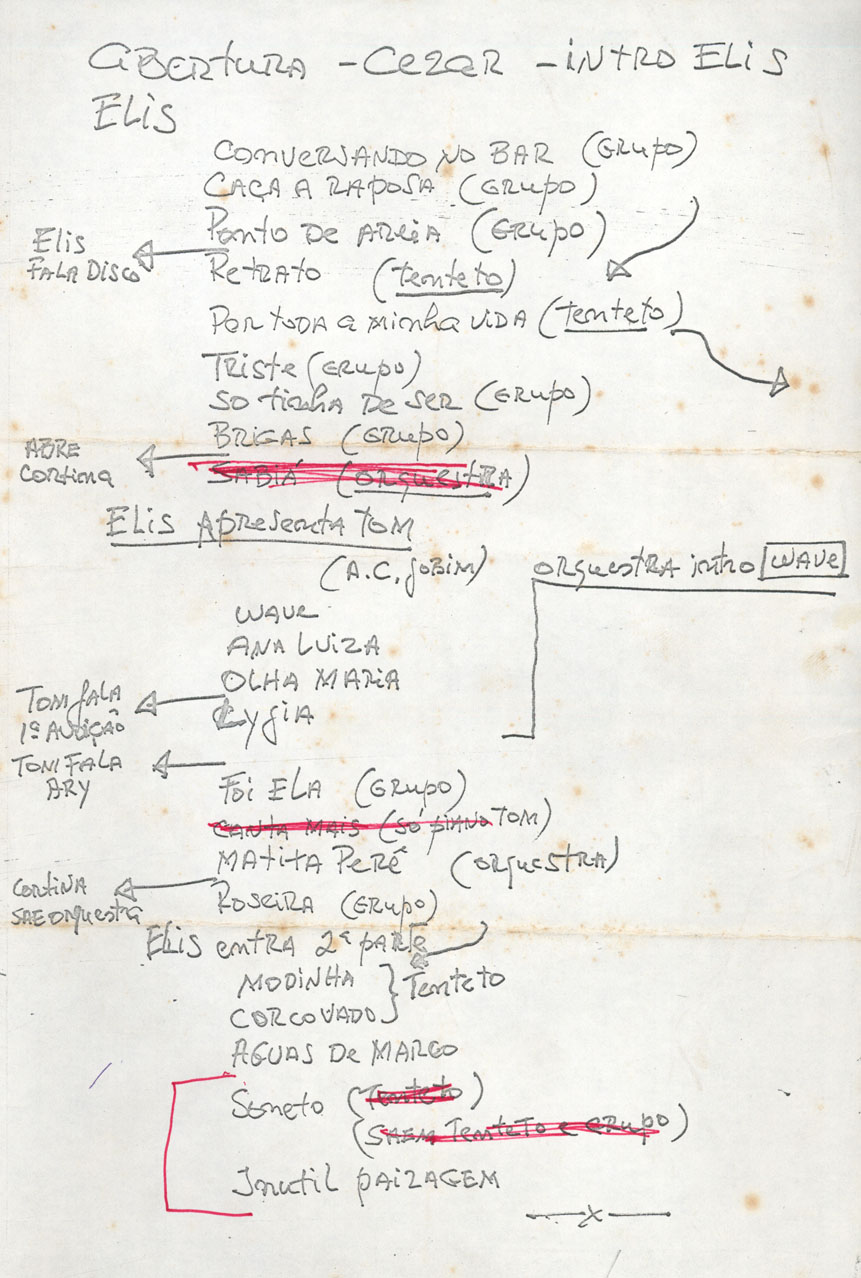 ABERTURA - CEZAR - INTRO ELIS
ELIS
CONVERSANDO NO BAR (GRUPO)
CAÇA A RAPOSA (GRUPO)
Ponto DE AREIA (GRUPO)
Elis
FALA DISCO
RETRATO (tenteto)
Por toda a minha vida (tenteto)
TRISTE (GRUPO)
SO tinha DE SER (GRUPO)
BRIGAS (GRUPO)
ABRE
CORTINA
SABIÁ (ORQUESTRA)
ELIS APRESENTA TOM
(A.C. JOBIM)
ORQUESTRA intro WAVE
WAVE
ANA LUIZA
OLHA MARIA
TOM FALA
1ª AUDIÇÃO
LYGIA
TOM FALA
ARY
FOI ELA (GRUPO)
CANTA MAIS (SÓ PIANO TOM)
MATITA PERÊ (ORQUESTRA)
CORTINA
SAE ORQUESTRA
ROSEIRA (GRUPO)
ELIS entra 2ª parte
MODINHA } Tenteto
CORCOVADO
AGUAS DE MARCO
Soneto (Tenteto)
(SAEM TENTETO e GRUPO)
Inutil PAIZAGEM
x